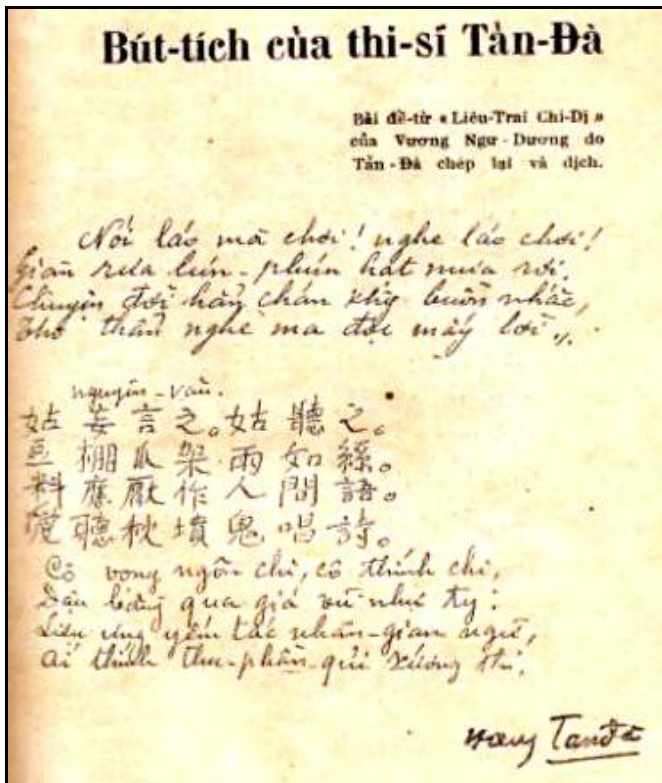 Bút-tích của thi-sĩ Tản-Đà
Bài đề-từ « Liêu-Trai Chí-Dị »
của Vương Ngư-Dương do
Tản-Đà chép lại và dịch.
Nói láo mà chơi! nghe láo chơi!
Giàn rưa lún-phún hạt mưa rơi.
Chuyện đời hẳn chán khg buồn nhắc,
Thơ thẩn nghe ma đọc mấy lời.
nguyên-văn.
姑妄言之。姑聽之。
豆棚瓜架雨如絲。
料應厭作人間語。
愛聽秋墳鬼唱詩。
Cô vong ngôn chi, cô thính chi,
Đậu bằng qua giá vũ như ty;
Liệu ưng yếm tác nhân-gian ngữ,
Ái thính thu-phần quỉ xướng thi.
Tanđà